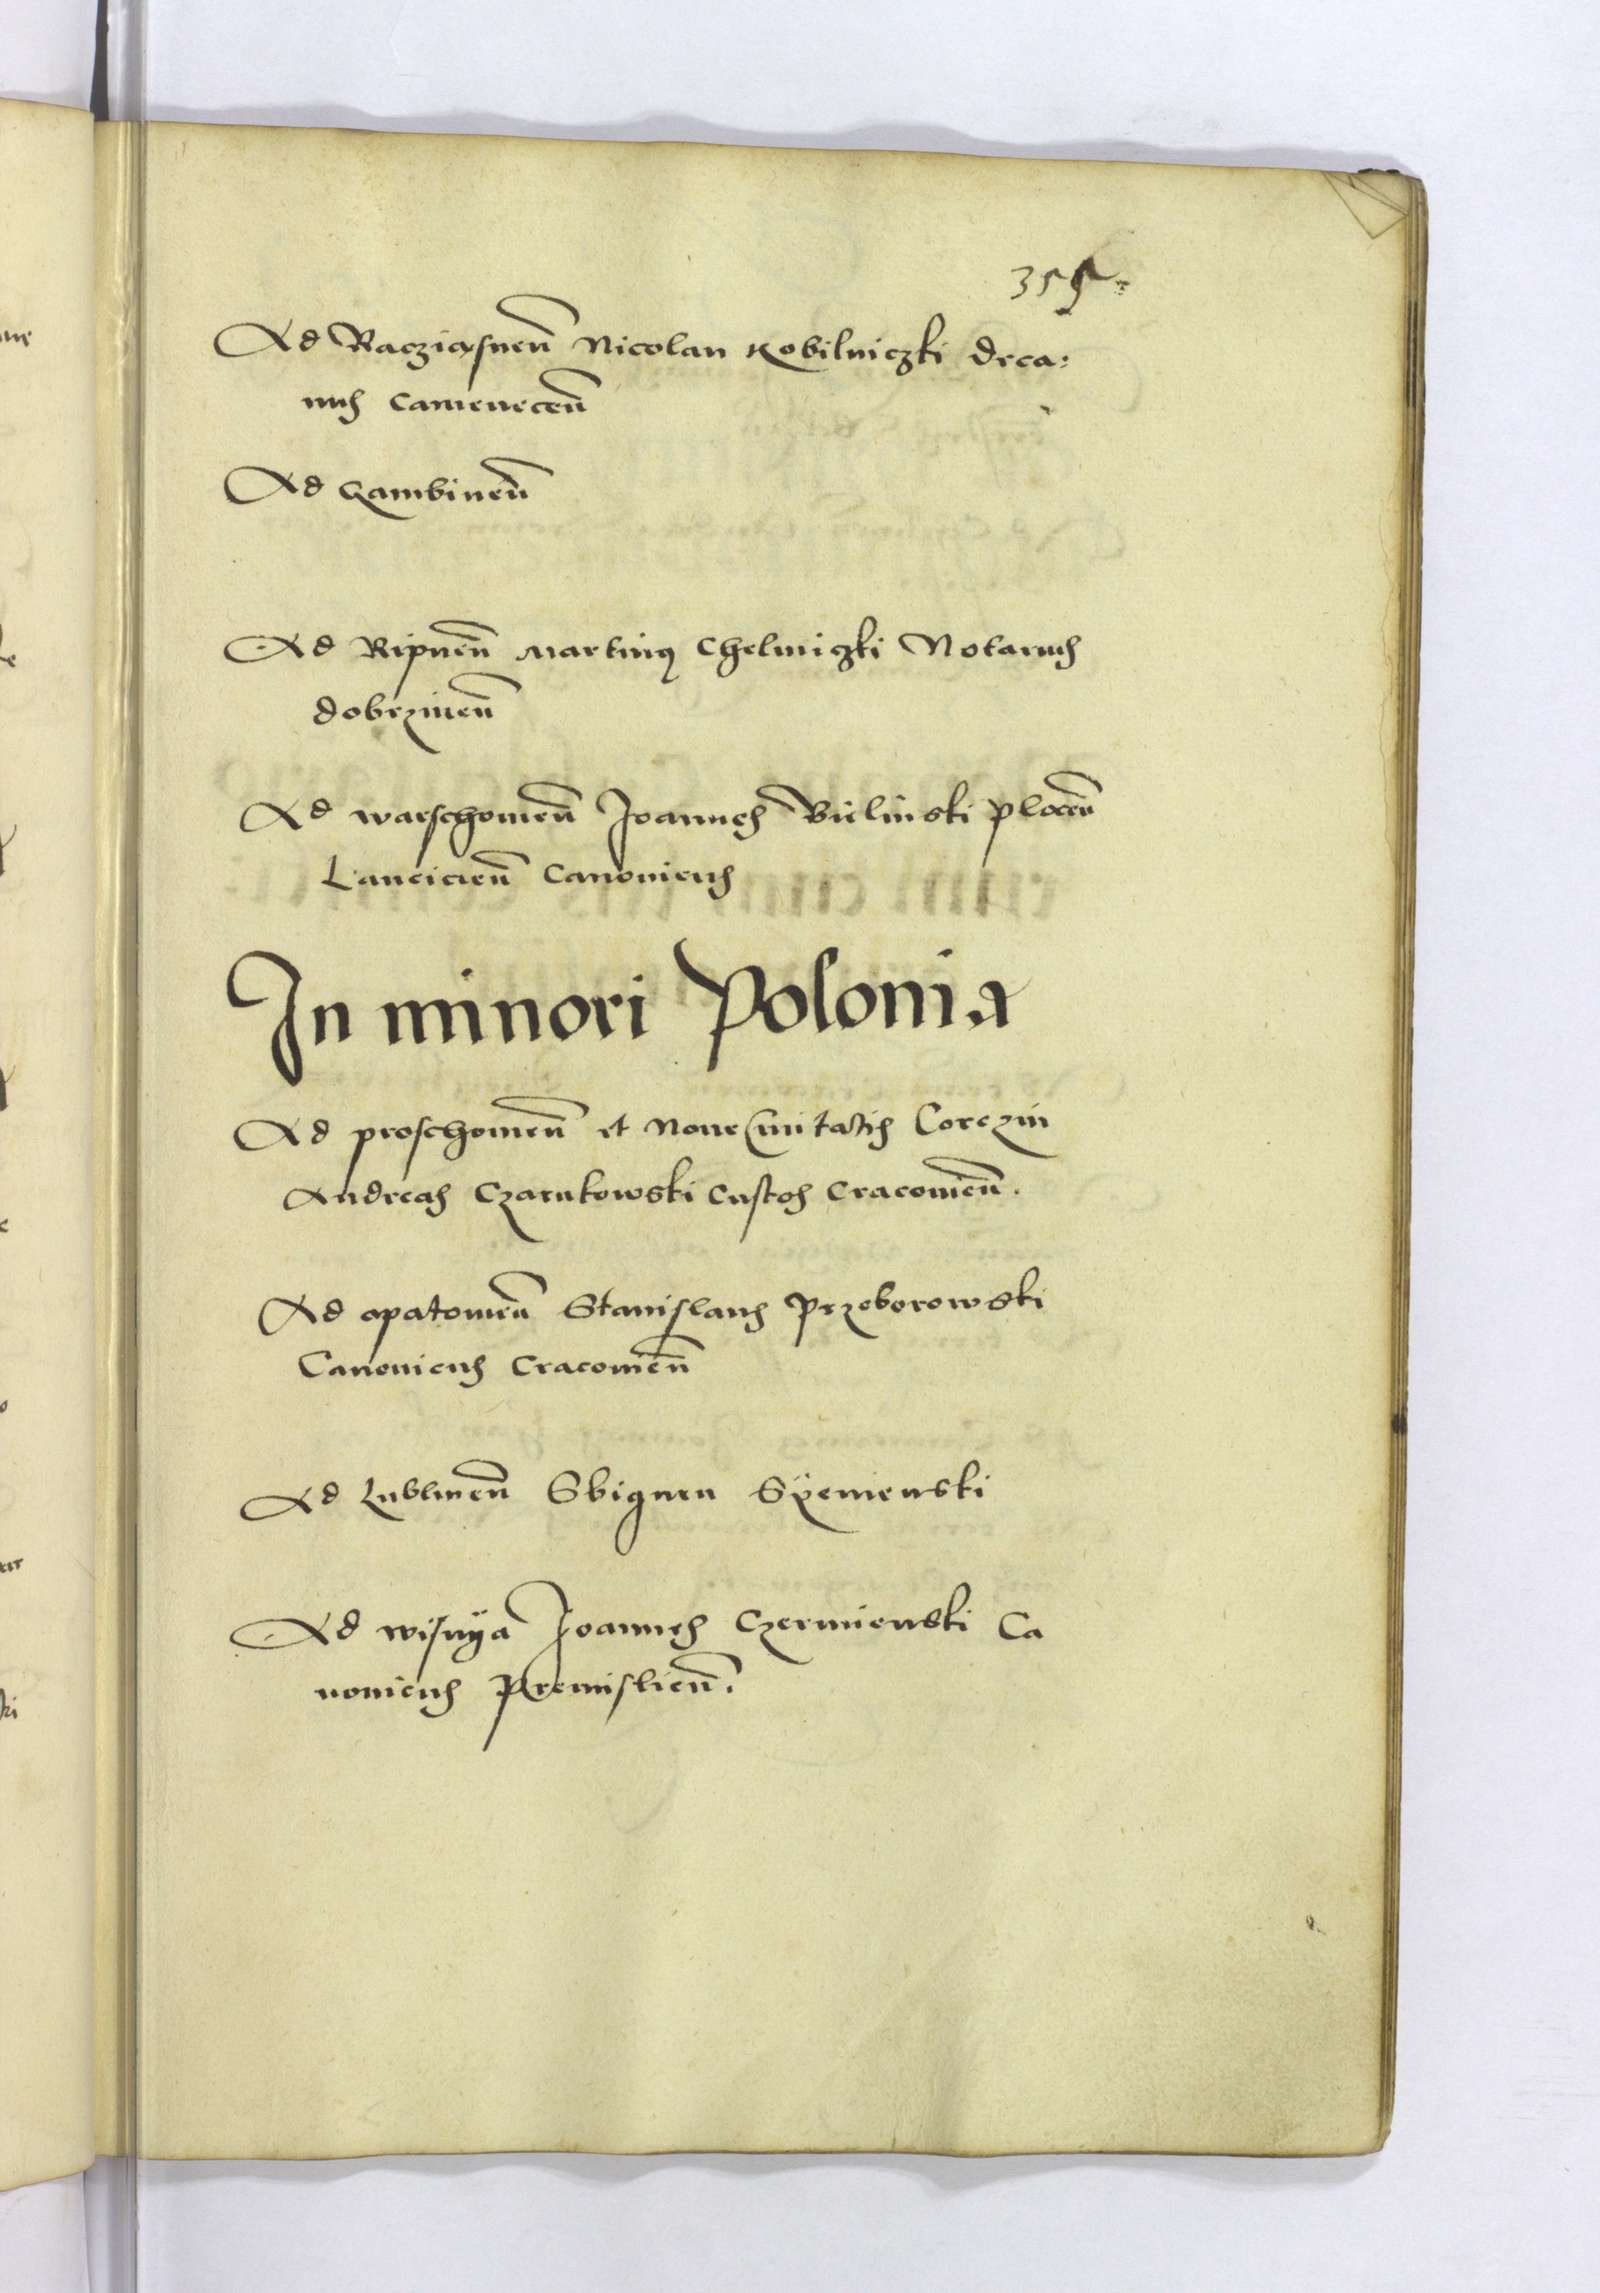 355
Ad Raczięsnen̄ Nicolau Kobilniczki deca:
nus Camenecen̄
Ad Gambinen̄
Ad Ripnen̄ Martinus Chelmiczki Notarius
dobrzinen̄
Ad warschovien̄ Joannes Bielinski plocen̄
Lancicien̄ Canonicus
In minori Polonia
Ad proschovien̄ et Nove Civitatis Corczin
Andreas Czarnkowski Custos Cracovien̄.
Ad opatovien̄ Stanislaus Przeborowski
Canonicus Cracovien̄
Ad Lublinen̄ Sbigneu
Ad wisnÿa Joannes Czermienski Ca
nonicus Premislien̄.